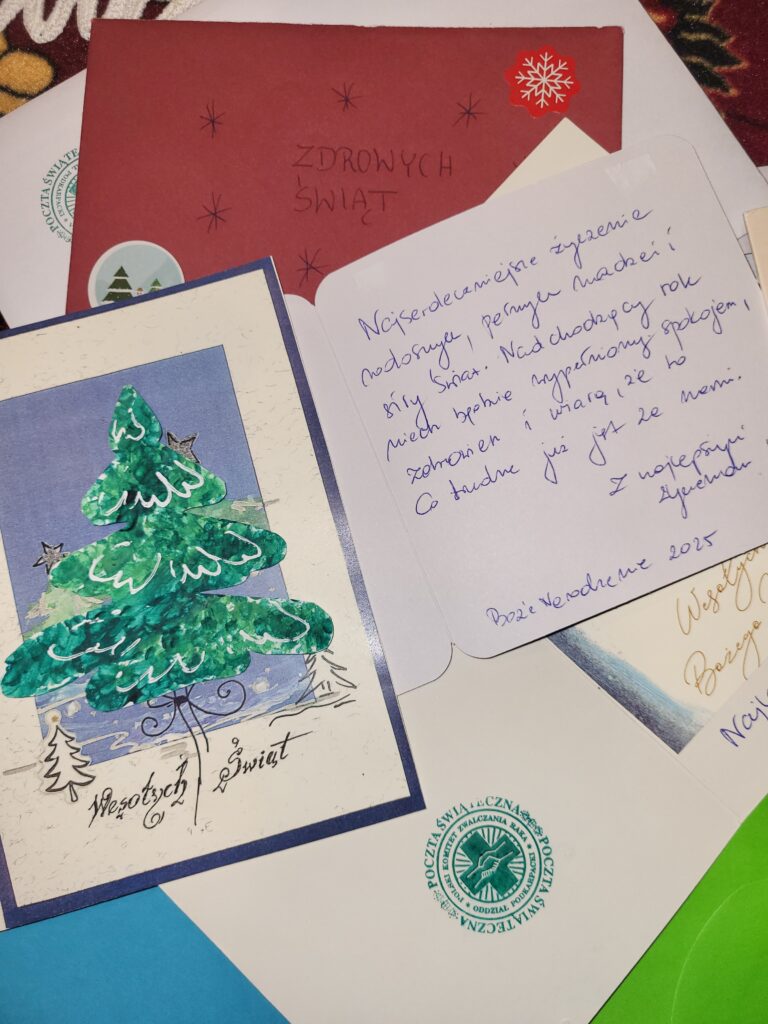 POCZTA ŚWIĄTE
ODDZIAŁ PODKARPACKI
ZDROWYCH
ŚWIĄT
Najserdeczniejsze życzenia
radosnych, pełnych nadziei i
siły Świąt. Nadchodzący rok
niech będzie wypełniony spokojem,
zdrowiem i wiarą, że to
co trudne już jest za nami.
Z najlepszymi
Boże Narodzenie 2025
Wesołych Świąt
Wesołych
Bożego
Najse
POCZTA ŚWIĄTECZNA POCZTA ŚWIĄTECZNA
POLSKI KOMITET ZWALCZANIA RAKA ODDZIAŁ PODKARPACKI